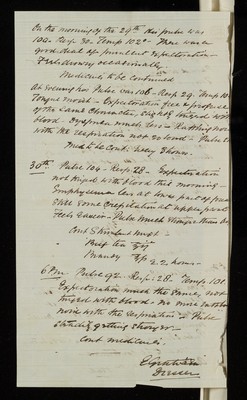 On the morning of the 29th his pulse was
104 - Resp 30 - Temp 102° - There was a
good deal of purulent expectoration
Feels drowsy occasionally
Medicine to be continued
At evening his Pulse was 106 - Resp 29 - Temp
Tongue moist - Expectoration free & profuse
of the same character, slightly tinged with
blood - Dyspnoea much less - Rattling noise
with the respiration not so loud - Pulse
Med to be Cont: every 3 hours -
30th Pulse 104 - Resp 28 - Expectoration
not tinged with blood this morning -
Emphysema less at lower part of
Still some crepitation at upper part
Feels easier - Pulse much stronger than
Cont Stimulant mixt -
Beef tea
Brandy 2 hours -
6 Pm Pulse 92 - Resp: 28 - Temp 101
Expectoration much the same, not
tinged with blood - no more
noise with the respiration - Pulse
steadily getting stronger -
Cont medicines.
Dresser